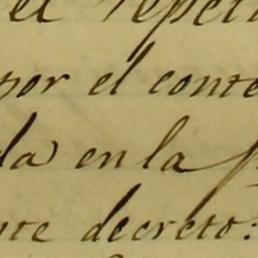 el repet
por el conte
da en la p
nte decreto: